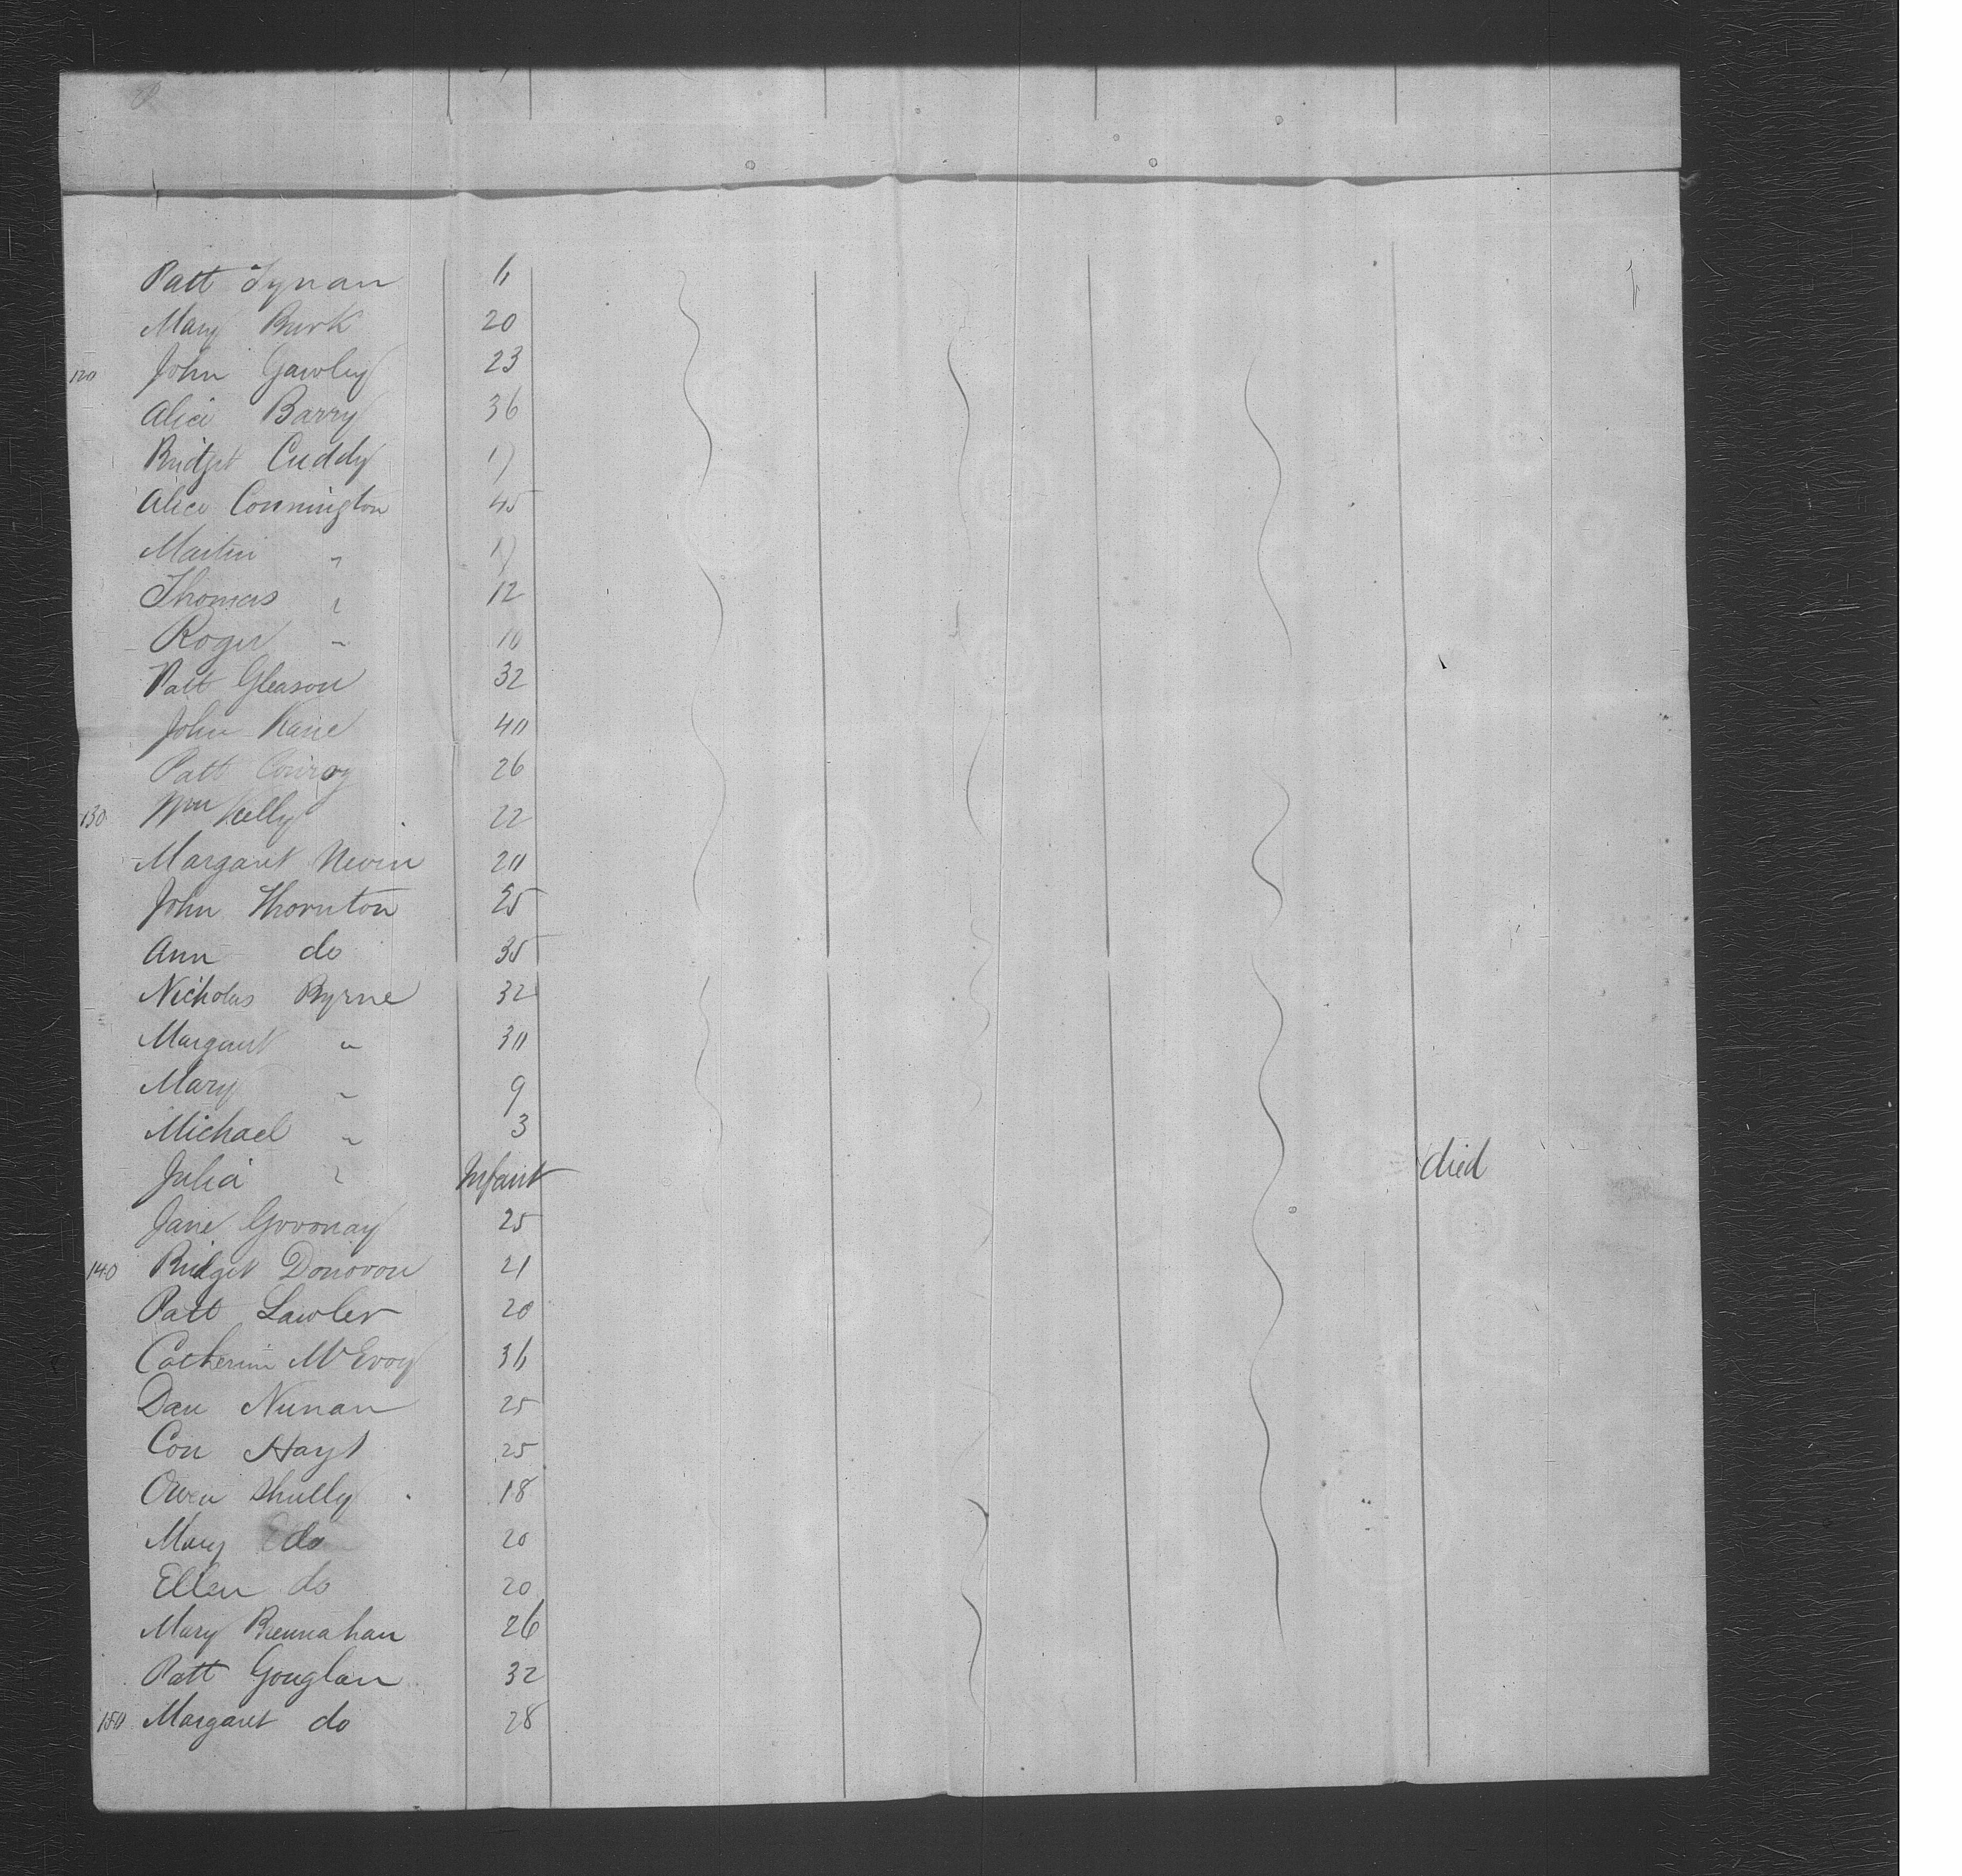 Patt Tynan 6
Mary Burk 20
120 John Gawley 23
Alice Barry 36
Bridget Cuddy 17
Alice Connington 45
Martin " 17
Thomas " 12
Roger " 10
Patt Gleason 32
John Kane 40
Patt Conroy 26
130 Wm Kelly 22
Margaret Nevin 20
John Thornton 25
Ann do 35
Nicholas Byrne 32
Margaret " 30
Mary " 9
Michael " 3
Julia " Infant died
Jane Govonay 25
140 Bridget Donovon 21
Patt Lawler 20
Catherine McEvoy 36
Dan Nunan 25
Con Hayt 25
Owen Shully 18
Mary do 20
Ellen do 20
Mary Brennahan 26
Patt Gouglan 32
150 Margaret do 28